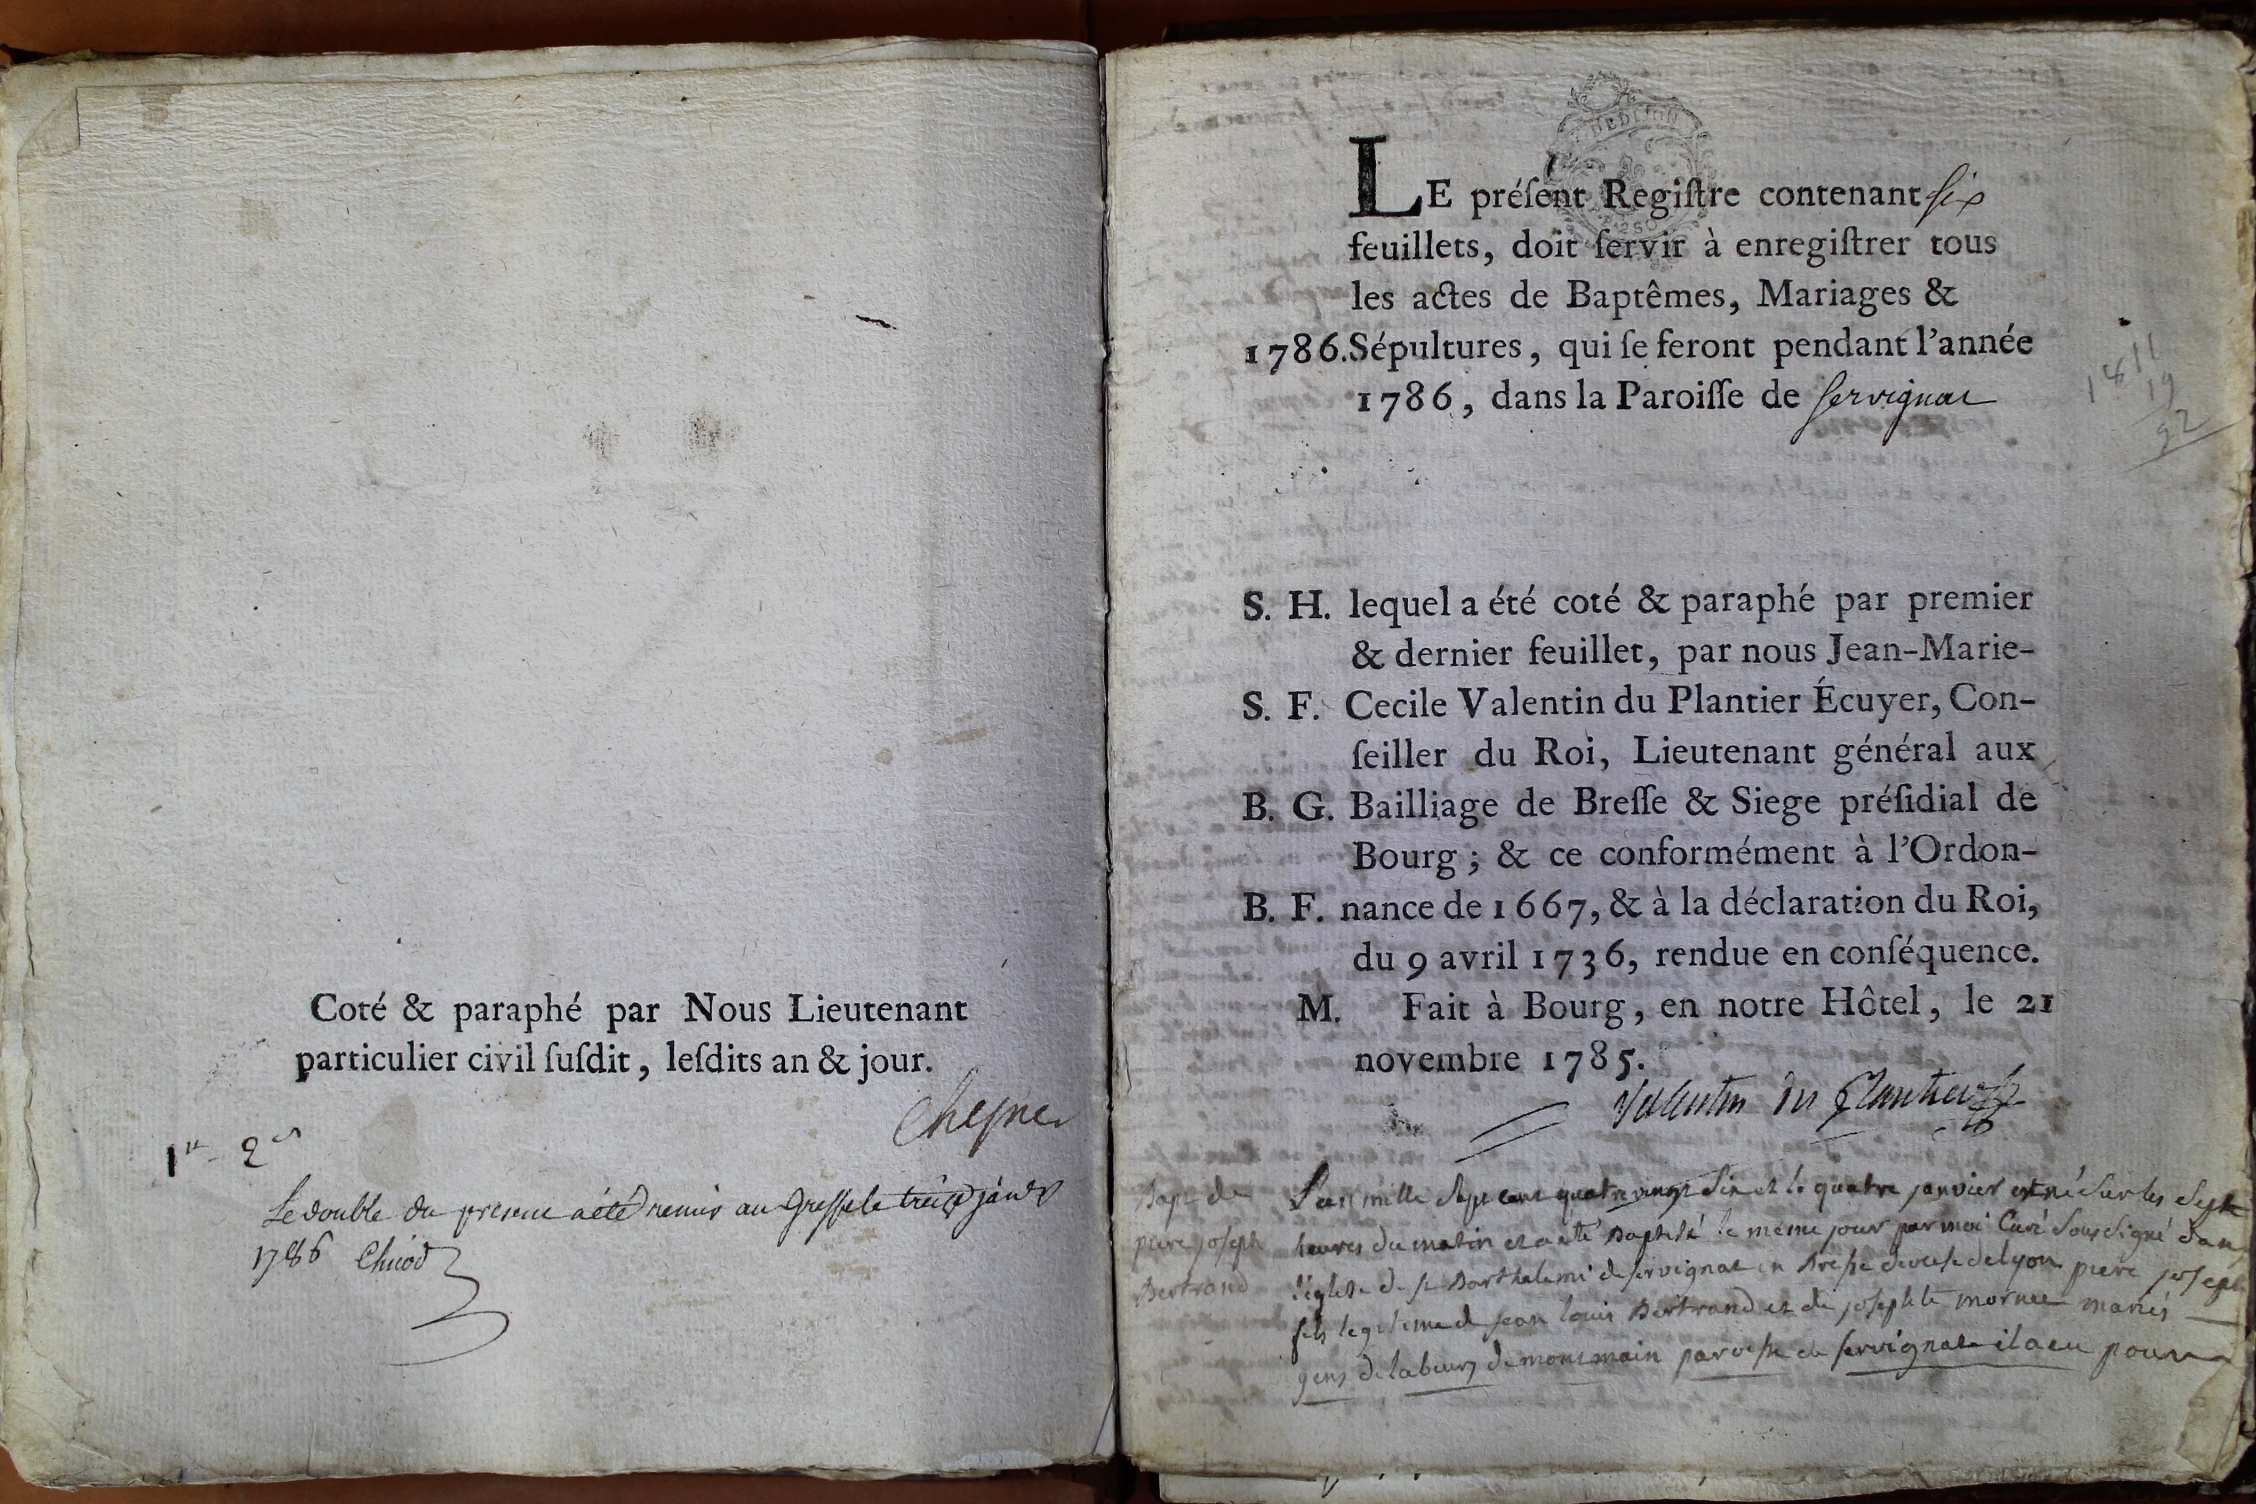 Coté & paraphé par Nous Lieutenant
particulier civil ſuſdit, leſdits an & jour.
Chesne
1er 2er
Le double du present a été remis au Greffe le treize janvr
1786 Chicod
LE préſent Regiſtre contenant six
feuillets, doit ſervir à enregiſtrer tous
les actes de Baptêmes, Mariages &
1786. Sépultures, qui ſe feront pendant l'année
1786, dans la Paroiſſe de Servignat
1811
19
92
S. H. lequel a été coté & paraphé par premier
& dernier feuillet, par nous Jean-Marie-
S. F. Cecile Valentin du Plantier Écuyer, Con-
ſeiller du Roi, Lieutenant général aux
B. G. Bailliage de Breſſe & Siege préſidial de
Bourg ; & ce conformément à l'Ordon-
B. F. nance de 1667, & à la déclaration du Roi,
du 9 avril 1736, rendue en conſéquence.
M. Fait à Bourg, en notre Hôtel, le 21
novembre 1785.
Valentin du Plantier
Bapt de
piere joseph
Bertrand
L'an mille sept cent quatre vingt six et le quatre janvier est né sur les sept
heures du matin et a eté Baptisé le même jour par moi Curé soussigné dans
l'eglise de st Barthelemi de servignat en Bresse diocese de lyon piere joseph
fils legitime de jean louis Bertrand et de josephte mornee mariés
gens de labeurs de montmain paroisse de servignat il a eu pour